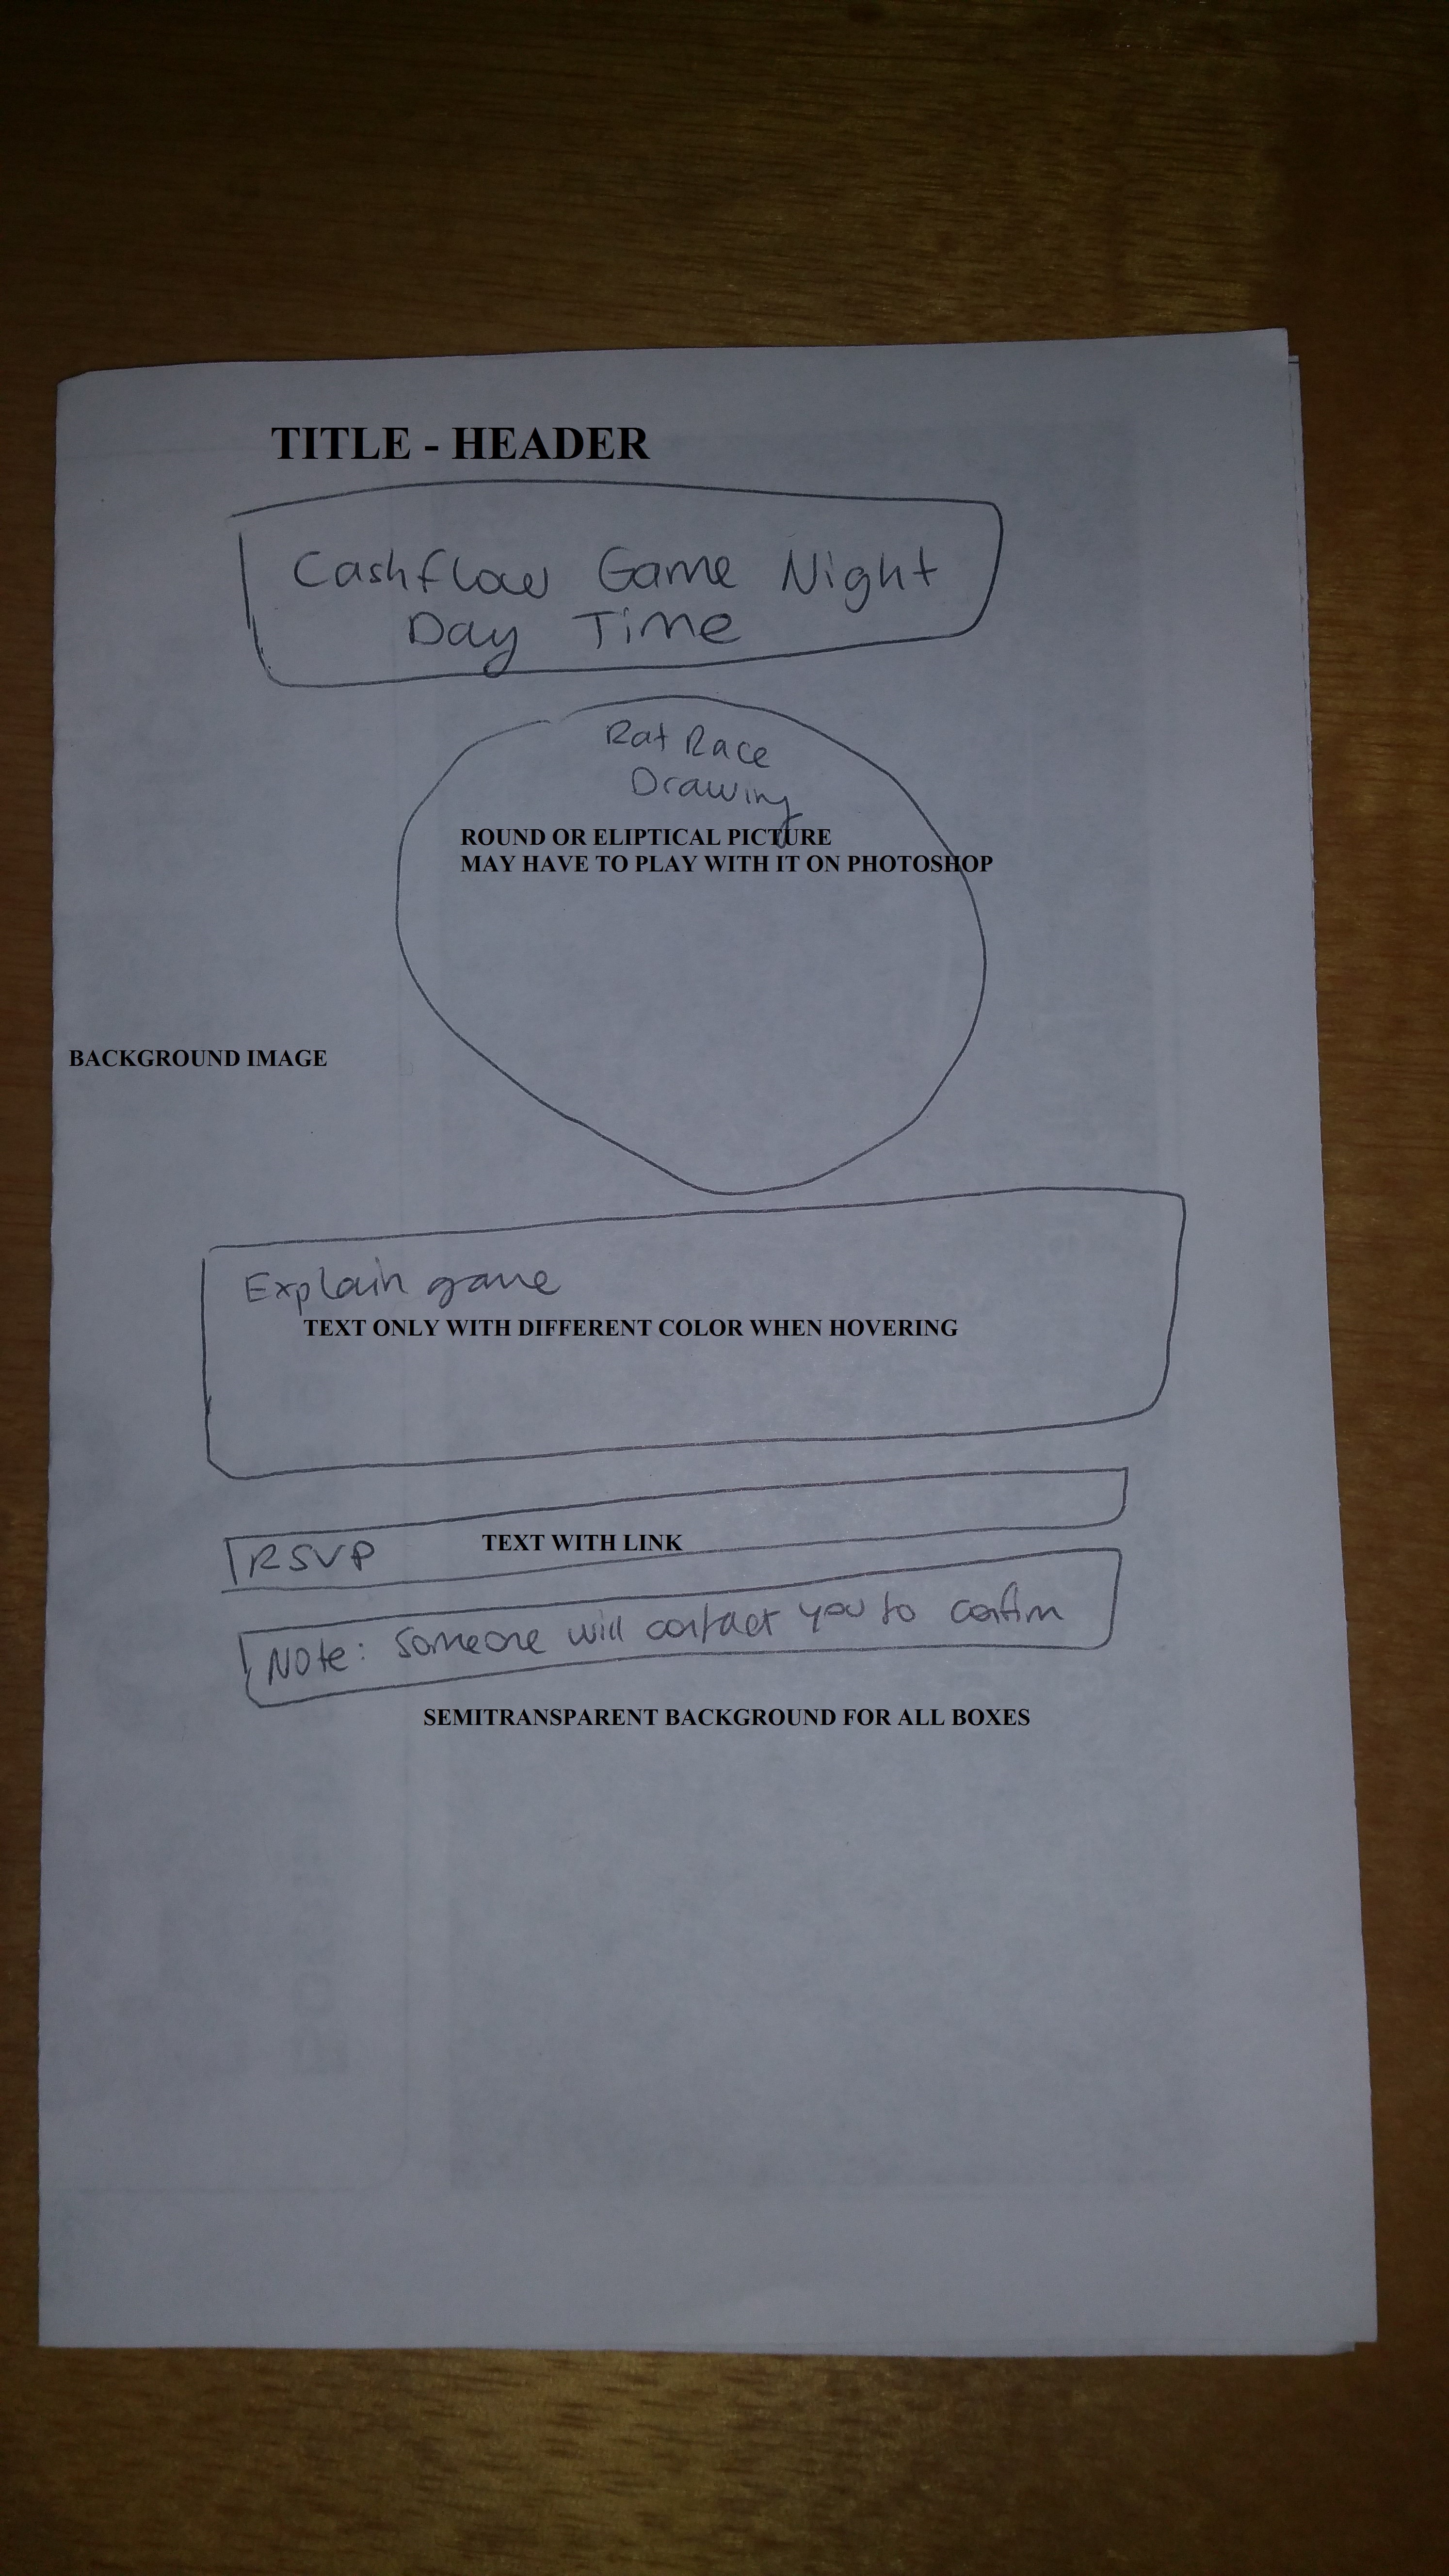 TITLE - HEADER
Cashflow Game Night
Day Time
Rat Race
Drawing
ROUND OR ELIPTICAL PICTURE
MAY HAVE TO PLAY WITH IT ON PHOTOSHOP
BACKGROUND IMAGE
Explain game
TEXT ONLY WITH DIFFERENT COLOR WHEN HOVERING
RSVP TEXT WITH LINK
Note: Someone will contact you to confirm
SEMITRANSPARENT BACKGROUND FOR ALL BOXES